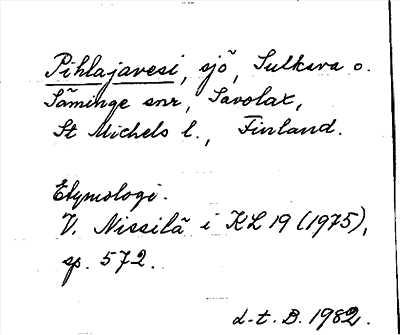 Pihlajavesi, sjö, Sulkava o.
Säminge snr, Savolax,
St Michels l., Finland.
Etymologi.
V. Nissilä i KL 19 (1975),
sp. 572.
d-t. B. 1982.